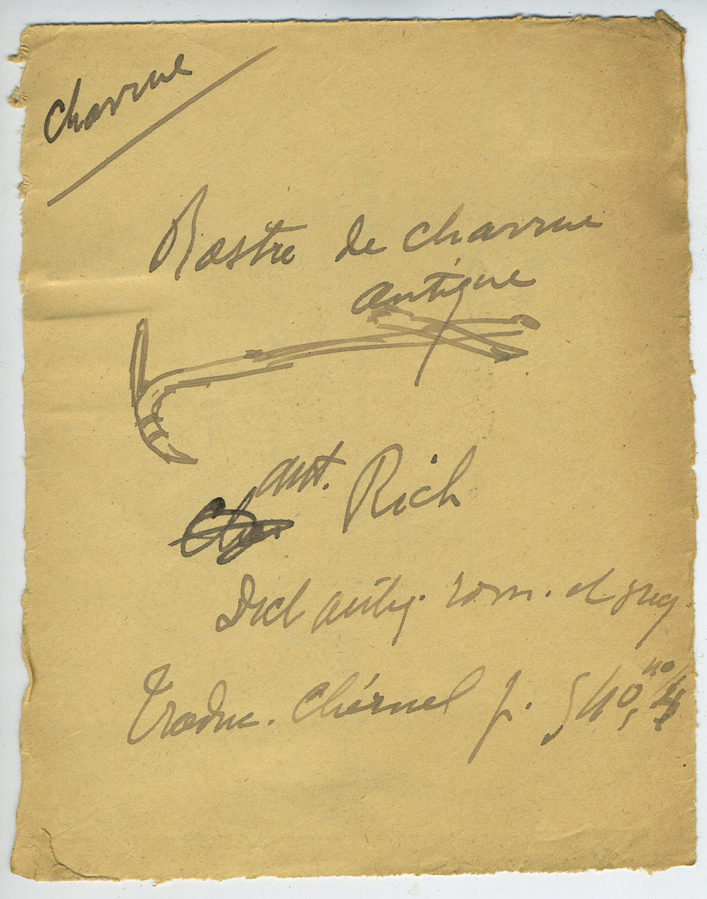 Charrue
Rostre de charrue
antique
ant. Rich
Dict antiq. rom. et grecq.
Traduc. Chéruel p. 540,